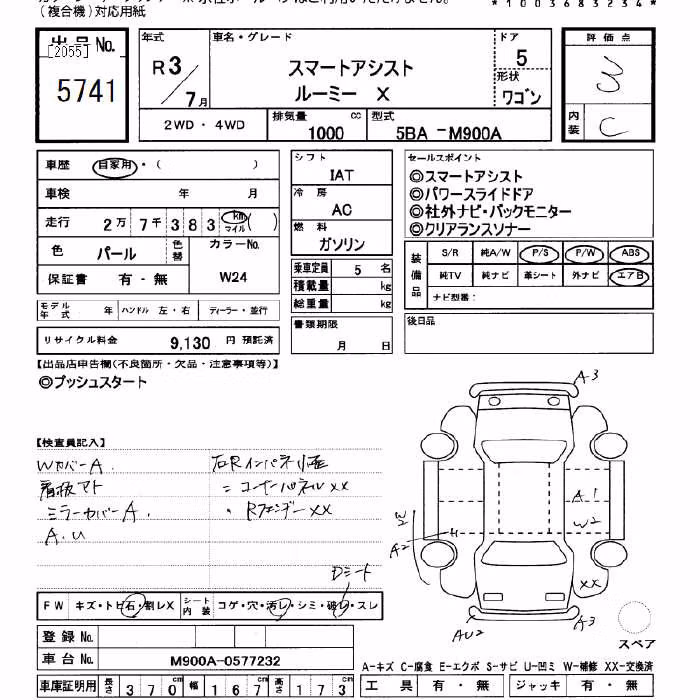 (複合機)対応用紙
*1003683234*
出品No.
[2055]
5741
年式
R3/7月
車名・グレード
スマートアシスト
ルーミー X
ドア
5
形状
ワゴン
評価点
3
内装
C
2WD・4WD
排気量 cc
1000
型式
5BA-M900A
車歴 自家用・( )
車検 年 月
走行 2万 7千 3 8 3 km マイル ( )
色 パール 色替 カラーNo. W24
保証書 有・無
モデル年式 年 ハンドル 左・右 ディーラー・並行
リサイクル料金 9,130 円 預託済
シフト
IAT
冷房
AC
燃料
ガソリン
乗車定員 5 名
積載量 kg
総重量 kg
書類期限
月 日
セールスポイント
◎スマートアシスト
◎パワースライドドア
◎社外ナビ・バックモニター
◎クリアランスソナー
装備品
S/R 純A/W P/S P/W ABS
純TV 純ナビ 革シート 外ナビ エアB
ナビ型番:
後日品
【出品店申告欄(不良箇所・欠品・注意事項等)】
◎プッシュスタート
【検査員記入】
WカバーA.
看板アト
ミラーカバーA.
A.U
右Rインパネ小歪
〃 コーナーパネルXX
〃 RフェンダーXX
Dシート
A3
A1
W2
W2
A2
XX
AU2
A3
スペア
FW キズ・トビ石・割レX
シート内装 コゲ・穴・汚レ・シミ・破レ・スレ
登録No.
車台No. M900A-0577232
車庫証明用 長さ 370cm 幅 167cm 高さ 173cm
A-キズ C-腐食 E-エクボ S-サビ U-凹ミ W-補修 XX-交換済
工具 有・無 ジャッキ 有・無